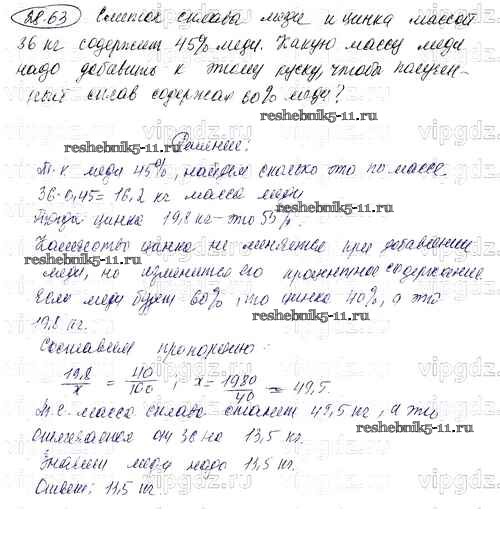 28.63 Слиток сплава меди и цинка массой
36 кг содержит 45% меди. Какую массу меди
надо добавить к этому куску, чтобы получен-
ный сплав содержал 60% меди?
reshebnik5-11.ru
Решение:
reshebnik5-11.ru
Т.к меди 45%, найдем сколько это по массе.
36·0,45=16,2 кг масса меди
reshebnik5-11.ru
Тогда цинка 19,8 кг – это 55%.
Количество цинка не меняется при добавлении
reshebnik5-11.ru
меди, но изменится его процентное содержание
Если меди будет 60%, то цинка 40%, а это
19,8 кг.
reshebnik5-11.ru
Составляем пропорцию:
19,8/x = 40/100; x = 1980/40 = 49,5.
Т.е. масса сплава станет 49,5 кг, а это
отличается от 36 на 13,5 кг.
reshebnik5-11.ru
Значит меди надо 13,5 кг.
Ответ: 13,5 кг
vipgdz.com